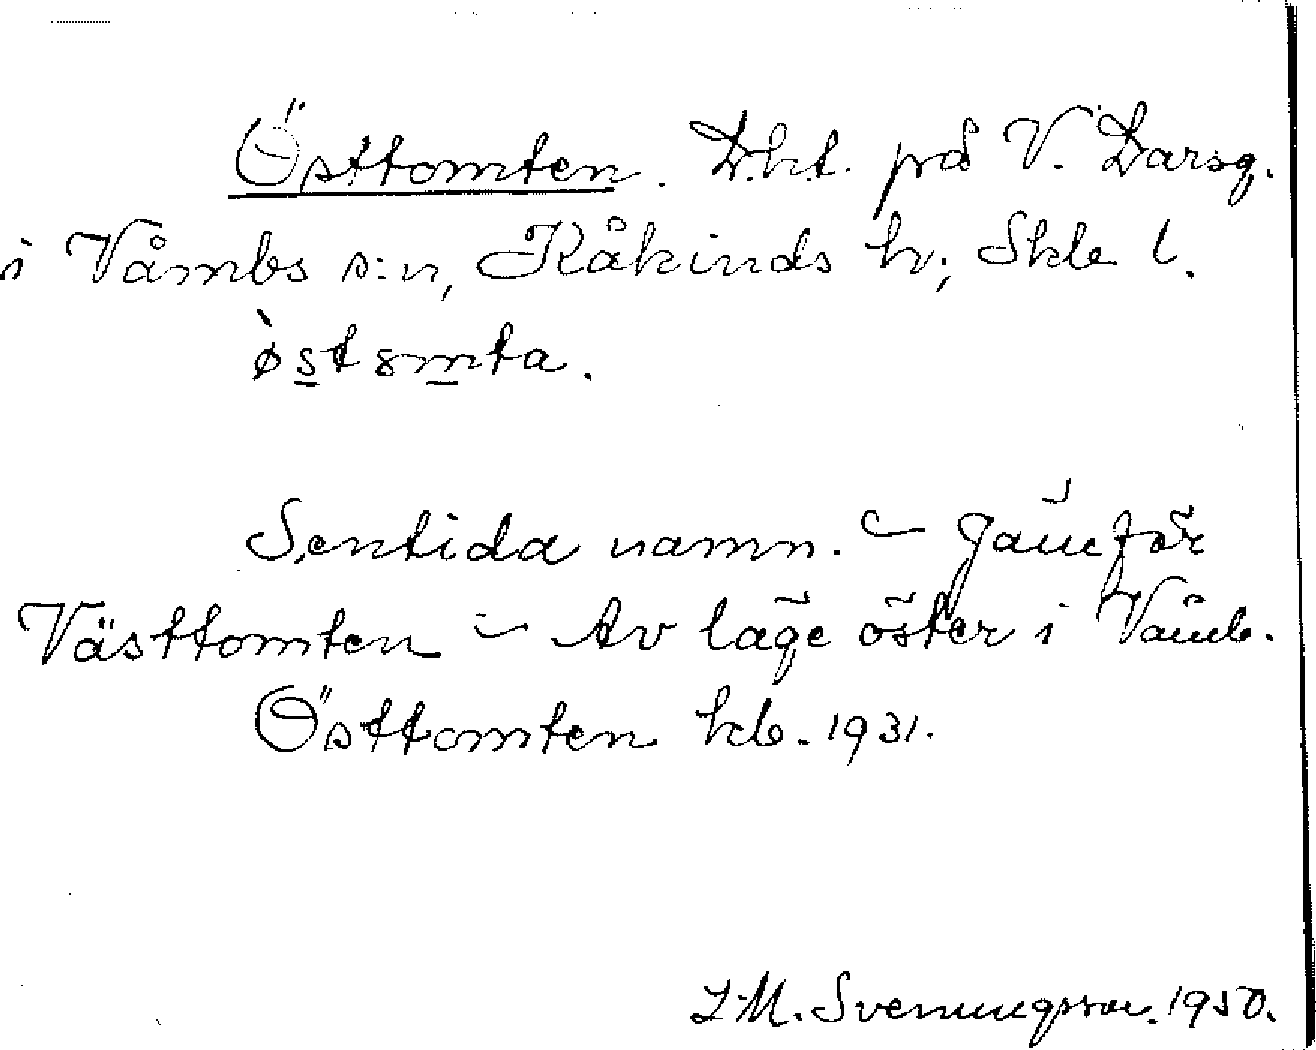 Östtomten. D.h.t. på V. Darsg.
i Våmbs s:n, Kåkinds hr; Skbg l.
Sentida namn. – Jämför
Västtomten – Av läge öster i Våmb.
Östtomten kb. 1931.
J.M. Svenungsson. 1950.